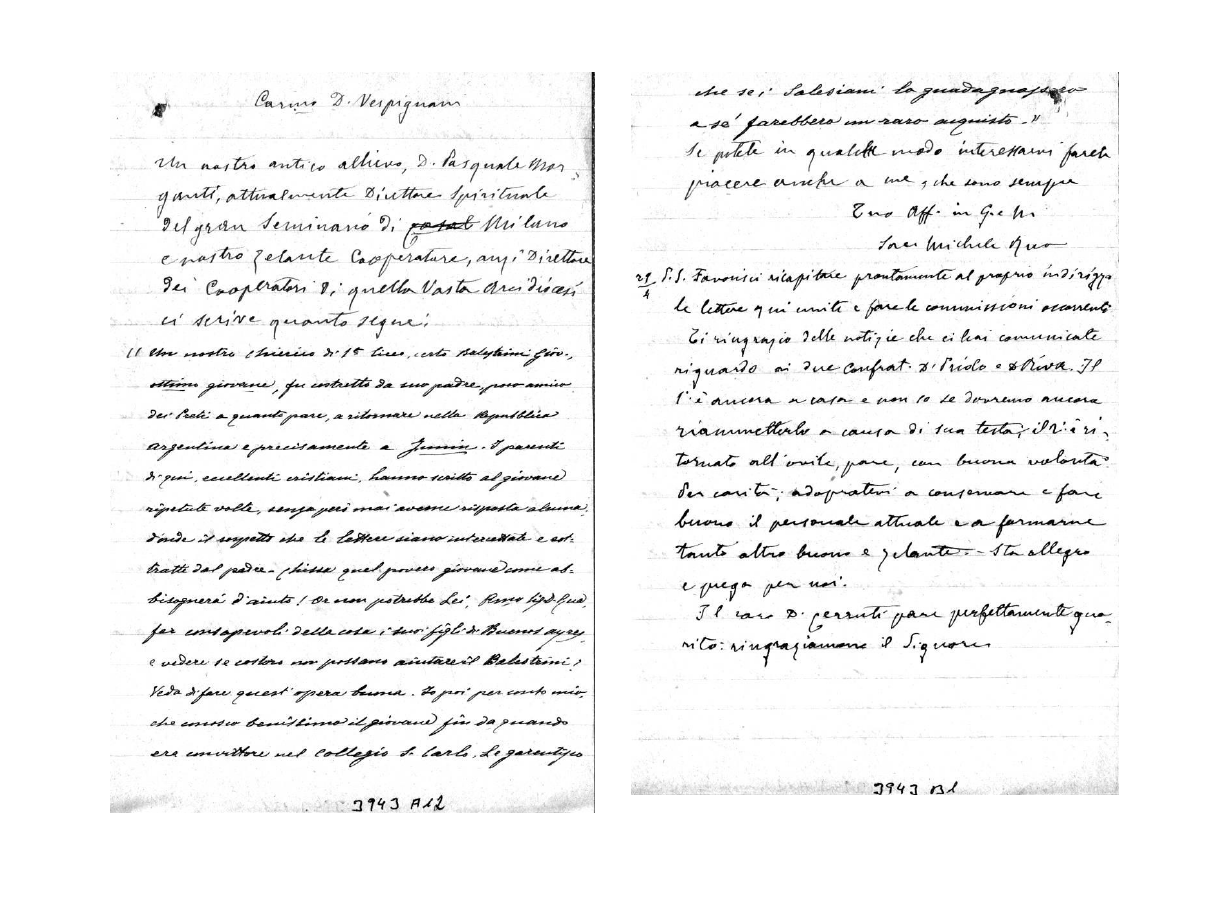 Car.mo D. Vespignani
Un nostro antico allievo, D. Pasquale Mor-
ganti, attualmente Direttore Spirituale
del gran Seminario di Milano
e nostro zelante Cooperatore, anzi Direttore
dei Cooperatori di quella Vasta Arcidiocesi
ci scrive quanto segue:
"Un nostro chierico di 1º liceo, certo Balestrini Giov.,
ottimo giovane, fu costretto da suo padre, poco amico
dei Preti a quanto pare, a ritornare nella Repubblica
Argentina e precisamente a Junin. I parenti
di qui, eccellenti cristiani, hanno scritto al giovane
ripetute volte, senza però mai averne risposta alcuna,
d'onde il sospetto che le lettere siano intercettate e sot-
tratte dal padre. Chissà quel povero giovane come ab-
bisognerà d'aiuto! Or non potrebbe Lei, Rmo Sig. D. Rua,
far consapevoli della cosa i suoi figli di Buenos Ayres,
e vedere se costoro non possano aiutare il Balestrini?
Veda di fare quest'opera buona. Io poi per conto mio,
che conosco benissimo il giovane fin da quando
era convittore nel Collegio S. Carlo, Le garentisco
3943 A12
che se i Salesiani lo guadagnassero
a sé farebbero un raro acquisto."
Se potete in qualche modo interessarvi farete
piacere anche a me, che sono sempre
Tuo Aff. in G. e M.
Sac. Michele Rua
29/4 P.S. Favorisci ricapitare prontamente al proprio indirizzo
le lettere qui unite e fare le commissioni occorrenti
Ti ringrazio delle notizie che ci hai comunicate
riguardo ai due confrat. D. Priolo e D. Riva. Il
1º è ancora a casa e non so se dovremo ancora
riammetterlo a causa di sua testa; il 2º è ri-
tornato all'ovile, pare, con buona volontà.
Per carità, adopratevi a conservare e fare
buono il personale attuale e a formarne
tanto altro buono e zelante. Sta allegro
e prega per noi.
Il caro D. Cerruti pare perfettamente gua-
rito: ringraziamone il Signore
3943 B1